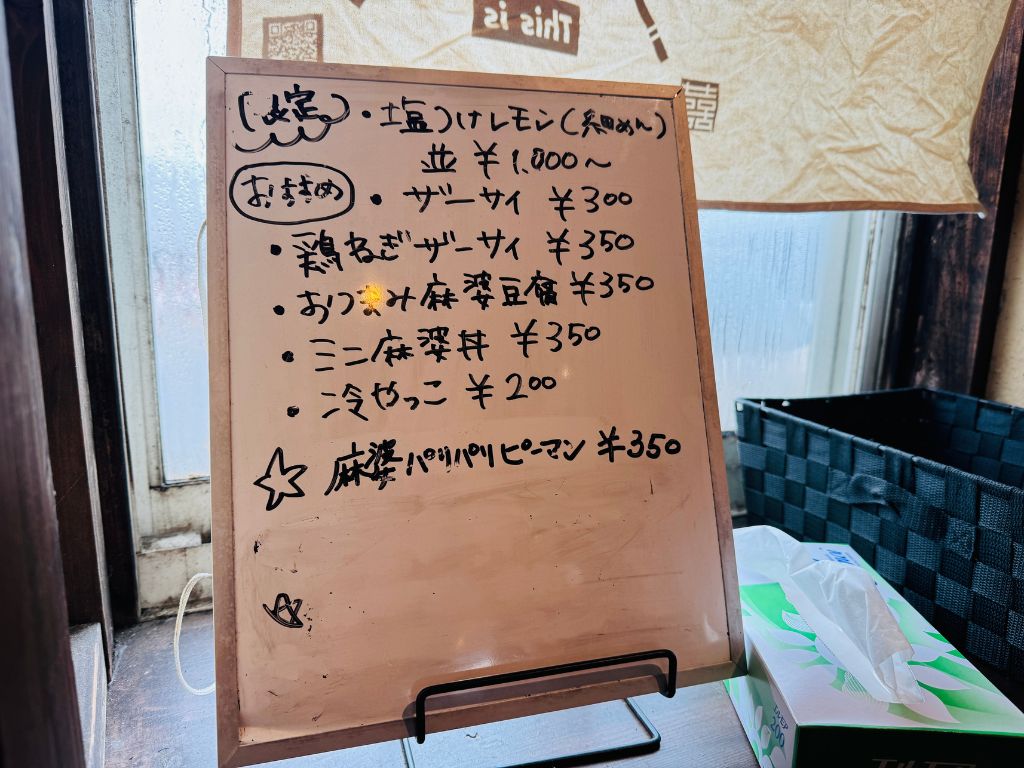 This is
囍
限定 ・塩つけレモン(細めん)
並 ¥1,000〜
おすすめ ・ザーサイ ¥300
・鶏ねぎザーサイ ¥350
・おつまみ麻婆豆腐 ¥350
・ミニ麻婆丼 ¥350
・冷やっこ ¥200
☆麻婆パリパリピーマン ¥350
200